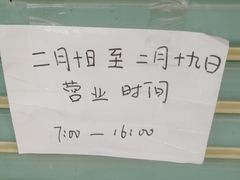 二月十日至二月十九日
营业时间
7:00—16:00